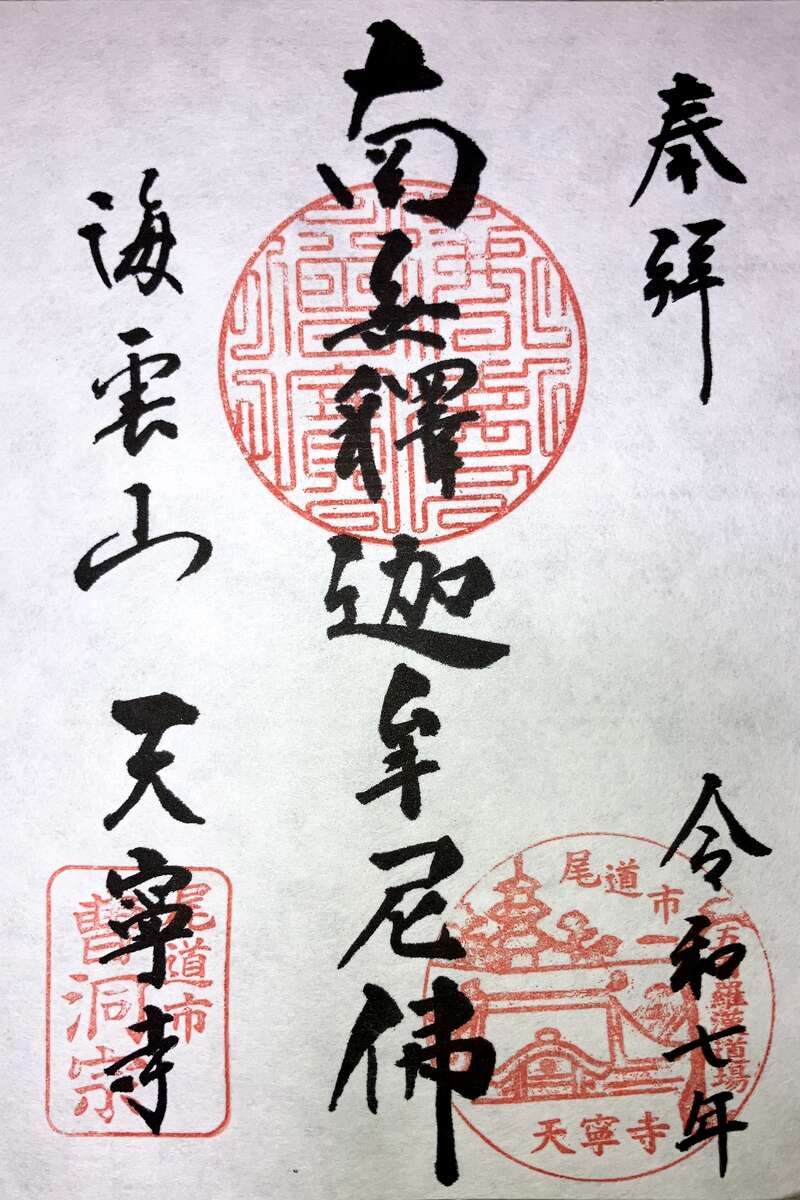 奉拜
令和七年
南無釋迦牟尼佛
海雲山 天寧寺
尾道市
五百羅漢道場
天寧寺
尾道市
曹洞宗